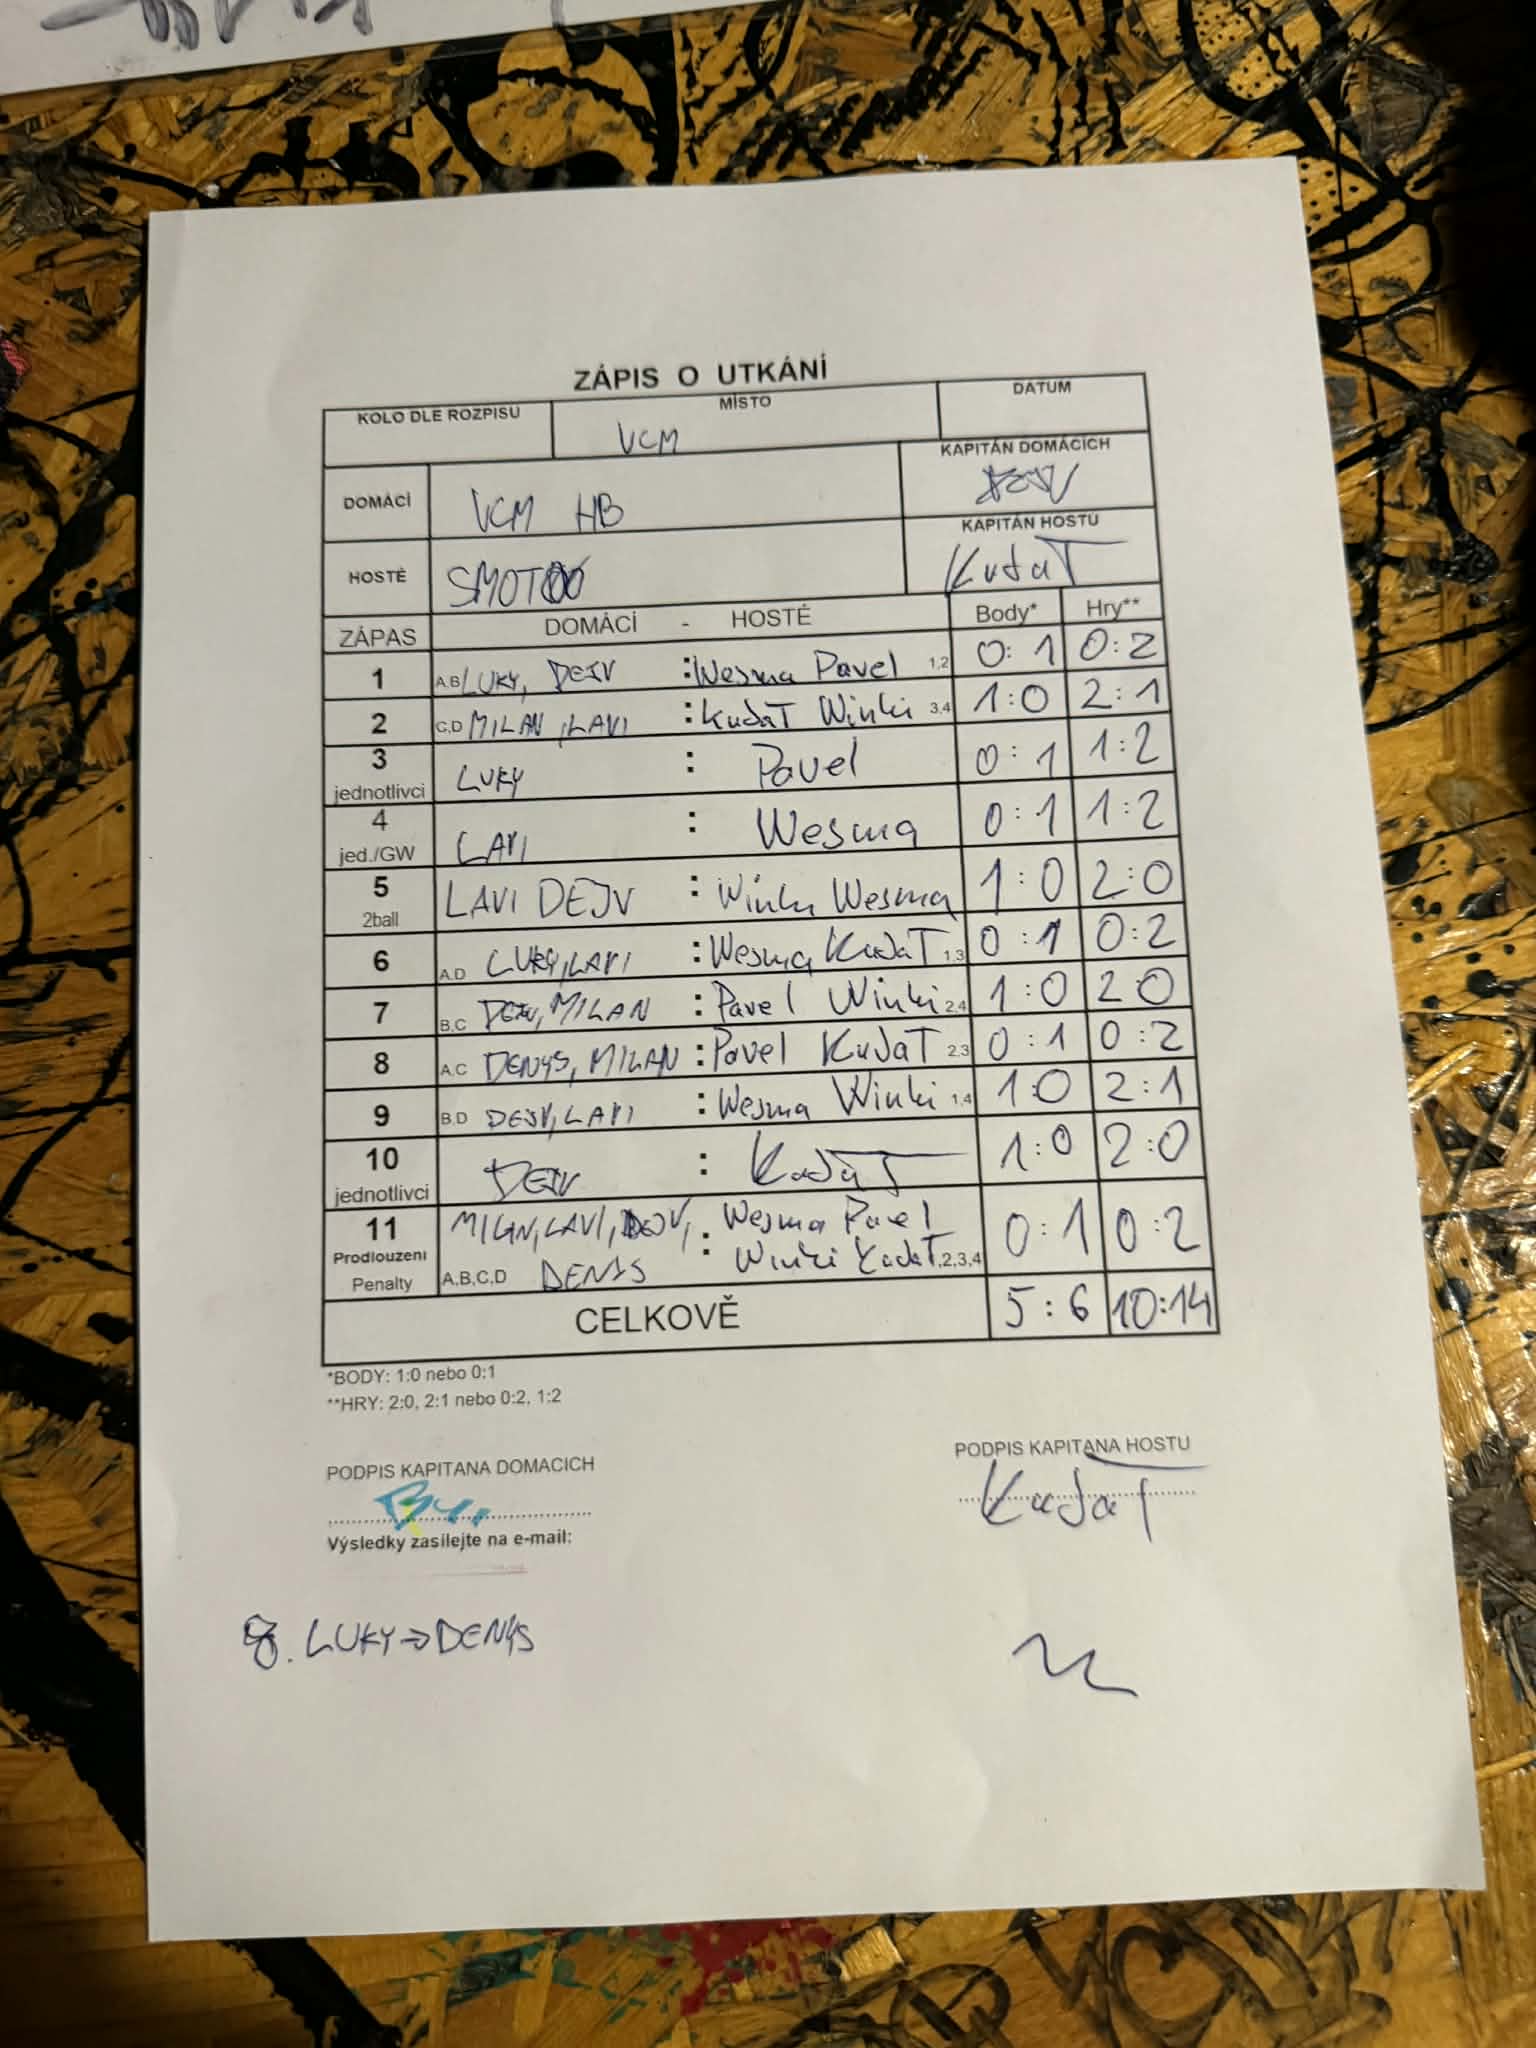 ZÁPIS O UTKÁNÍ
KOLO DLE ROZPISU MÍSTO DATUM
VCM
DOMÁCÍ VCM HB KAPITÁN DOMÁCÍCH
HOSTÉ SMOT KAPITÁN HOSTU KudaT
ZÁPAS DOMÁCÍ - HOSTÉ Body* Hry**
1 A.B LUKY, DEJV : Wesma Pavel 1,2 0:1 0:2
2 C,D MILAN, LAVI : KudaT Winki 3,4 1:0 2:1
3 jednotlivci LUKY : Pavel 0:1 1:2
4 jed./GW LAVI : Wesma 0:1 1:2
5 2ball LAVI DEJV : Winki Wesma 1:0 2:0
6 A.D LUKY, LAVI : Wesma KudaT 1,3 0:1 0:2
7 B,C DEJV, MILAN : Pavel Winki 2,4 1:0 2 0
8 A.C DENYS, MILAN : Pavel KudaT 2,3 0:1 0:2
9 B.D DEJV, LAVI : Wesma Winki 1,4 1:0 2:1
10 jednotlivci DEJV : KudaT 1:0 2:0
11 Prodlouzeni Penalty MILAN, LAVI, DEJV, : Wesma Pavel 0:1 0:2
A,B,C,D DENIS Winki KudaT ,2,3,4
CELKOVĚ 5:6 10:14
*BODY: 1:0 nebo 0:1
**HRY: 2:0, 2:1 nebo 0:2, 1:2
PODPIS KAPITANA DOMACICH PODPIS KAPITANA HOSTU
KudaT
Výsledky zasílejte na e-mail:
8. LUKY → DENYS